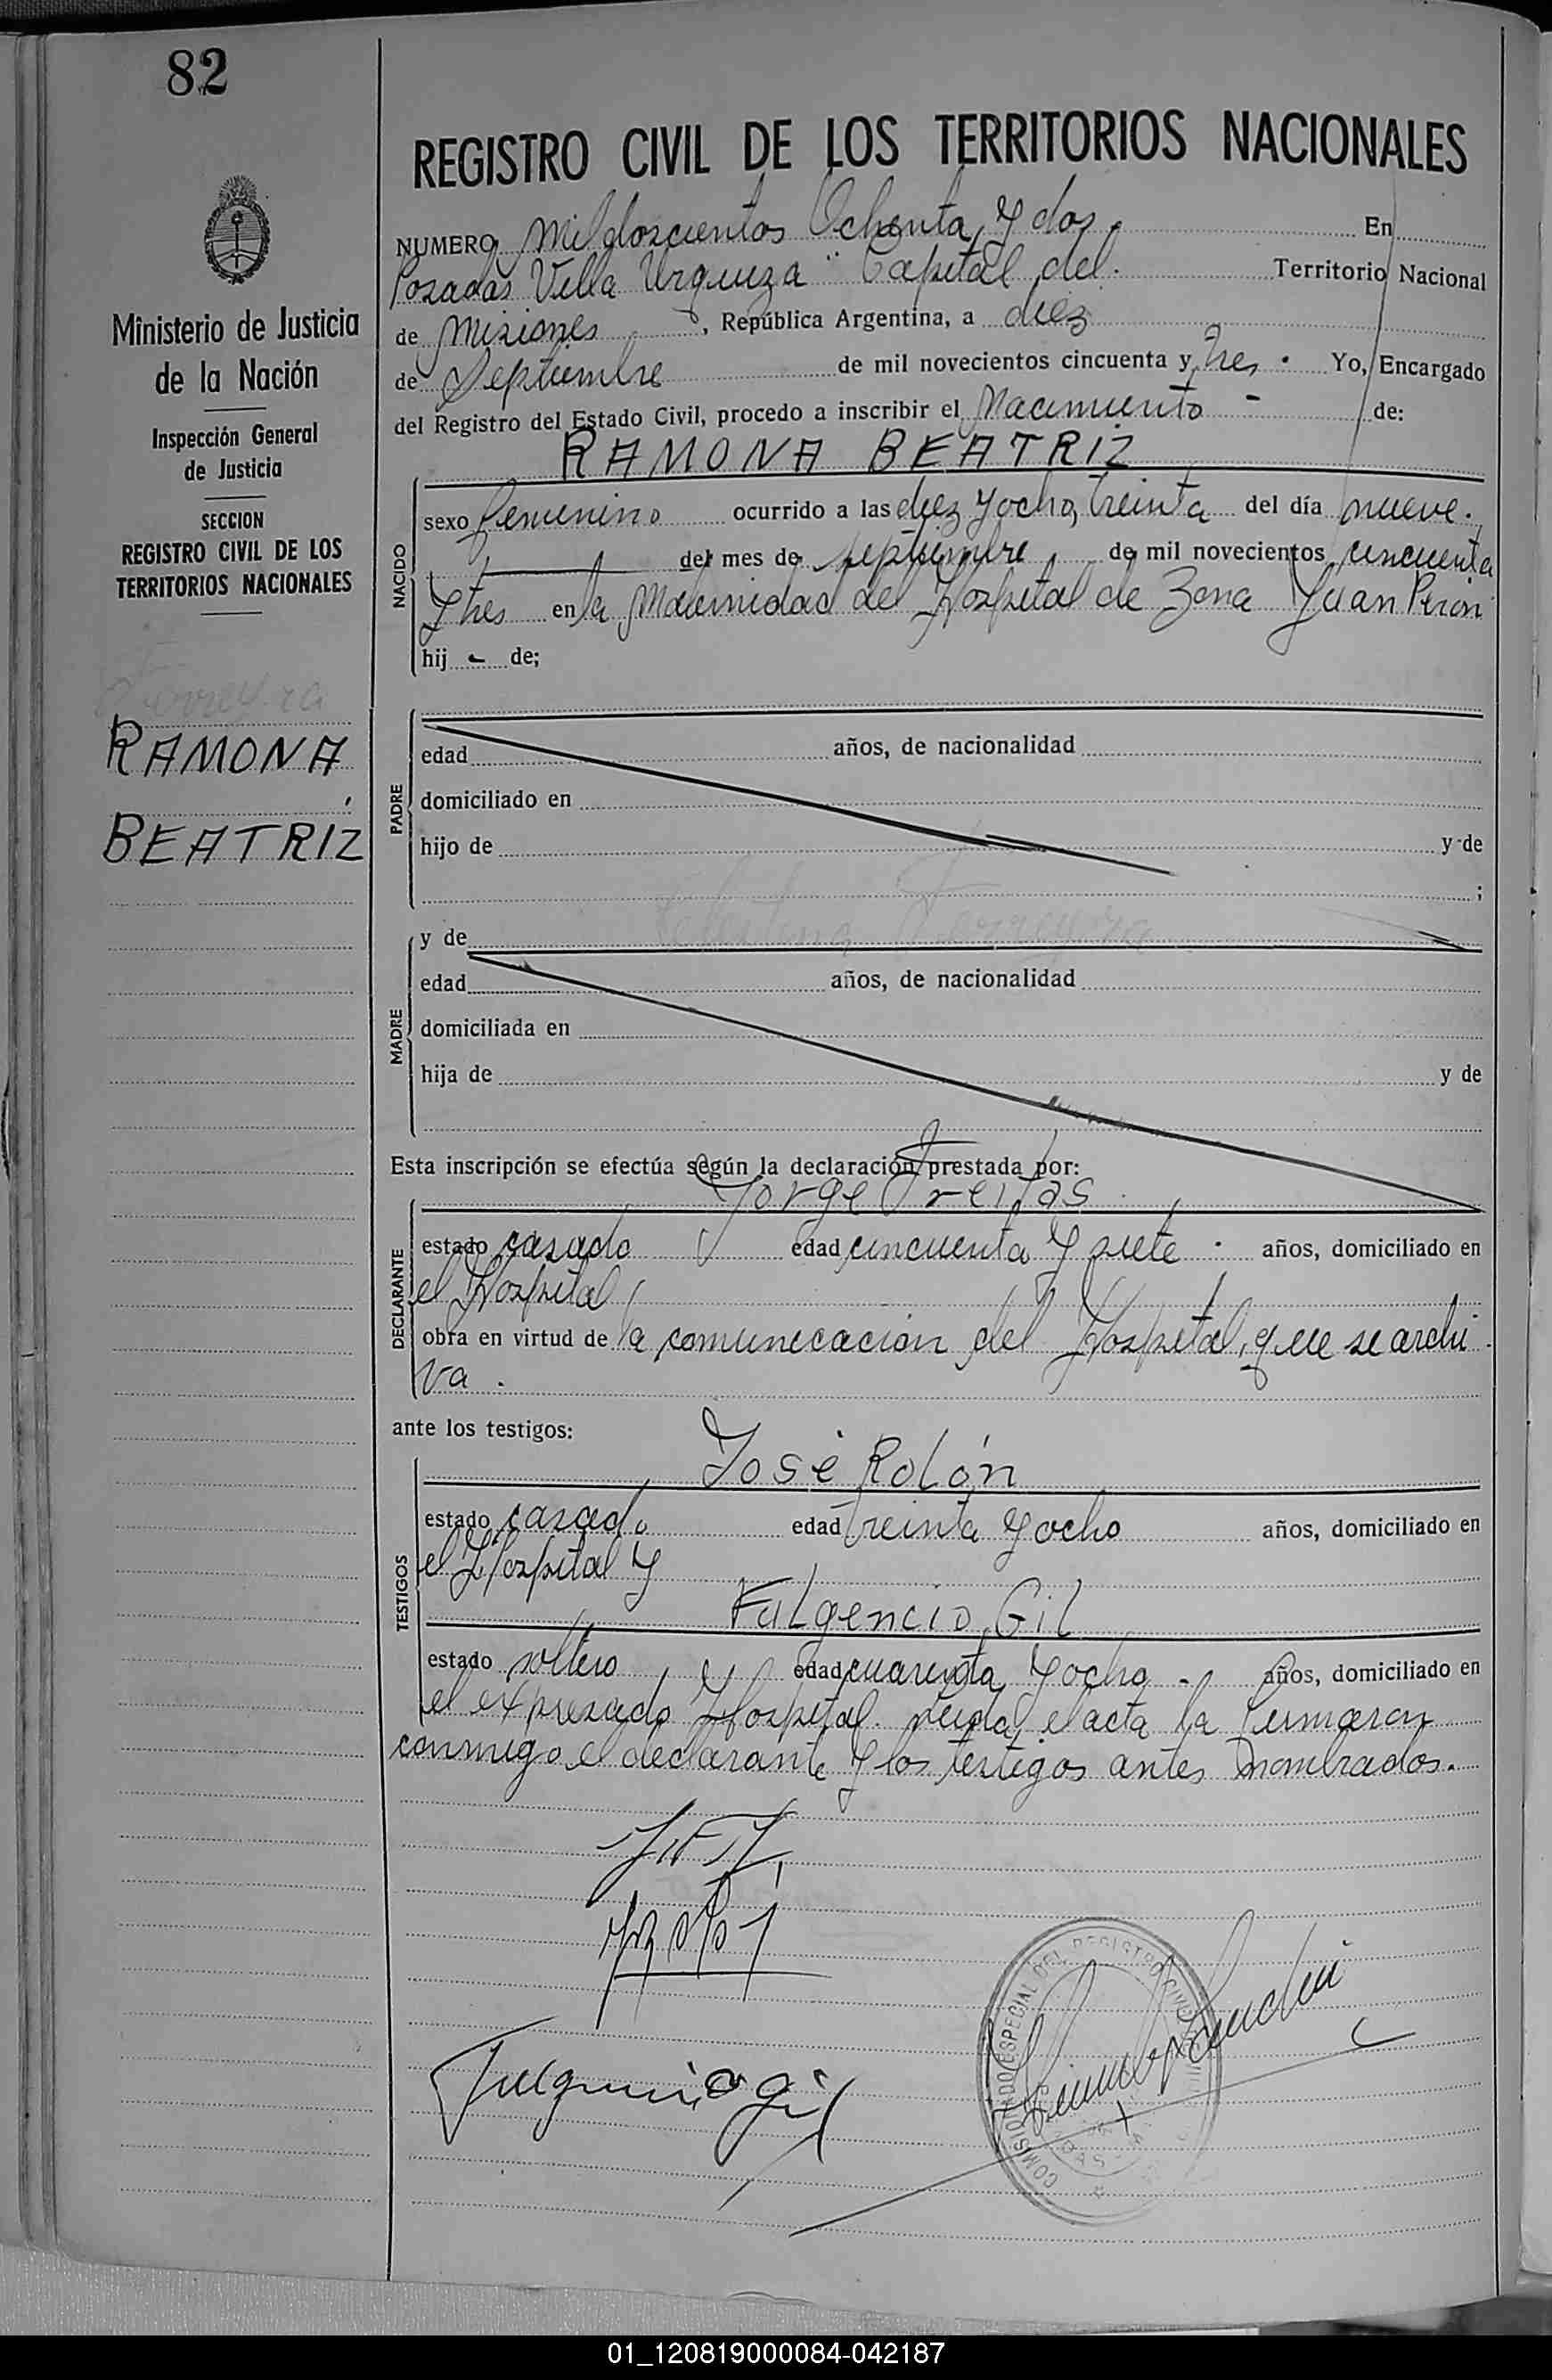 82
REGISTRO CIVIL DE LOS TERRITORIOS NACIONALES
Ministerio de Justicia
de la Nación
Inspección General
de Justicia
SECCION
REGISTRO CIVIL DE LOS
TERRITORIOS NACIONALES
Ferreyra
RAMONA
BEATRIZ
NUMERO Mil doscientos Ochenta y dos. En
Posadas Villa Urquiza" Capital del. Territorio Nacional
de Misiones, República Argentina, a diez
de Septiembre de mil novecientos cincuenta y tres. Yo, Encargado
del Registro del Estado Civil, procedo a inscribir el Nacimiento - de:
RAMONA BEATRIZ
NACIDO
sexo femenino ocurrido a las diez y ocho, treinta del día nueve.
del mes de septiembre, de mil novecientos cincuenta
y tres en la Maternidad del Hospital de Zona Juan Peron
hij a de;
PADRE
edad años, de nacionalidad
domiciliado en
hijo de y de
;
MADRE
y de Celestina Ferreyra
edad años, de nacionalidad
domiciliada en
hija de y de
Esta inscripción se efectúa según la declaración prestada por:
Jorge Freitas
DECLARANTE
estado casado edad cincuenta y siete. años, domiciliado en
el Hospital
obra en virtud de la comunicacion del Hospital, que se archi
va.
ante los testigos:
José Rolón
TESTIGOS
estado casado edad treinta y ocho años, domiciliado en
el Hospital y
Fulgencio Gil
estado soltero, edad cuarenta y ocho - años, domiciliado en
el expresado Hospital. Leida el acta la firmaron
conmigo el declarante y los testigos antes nombrados.
Fulgencio gil
COMISIONADO ESPECIAL DEL REGISTRO CIVIL
01_120819000084-042187